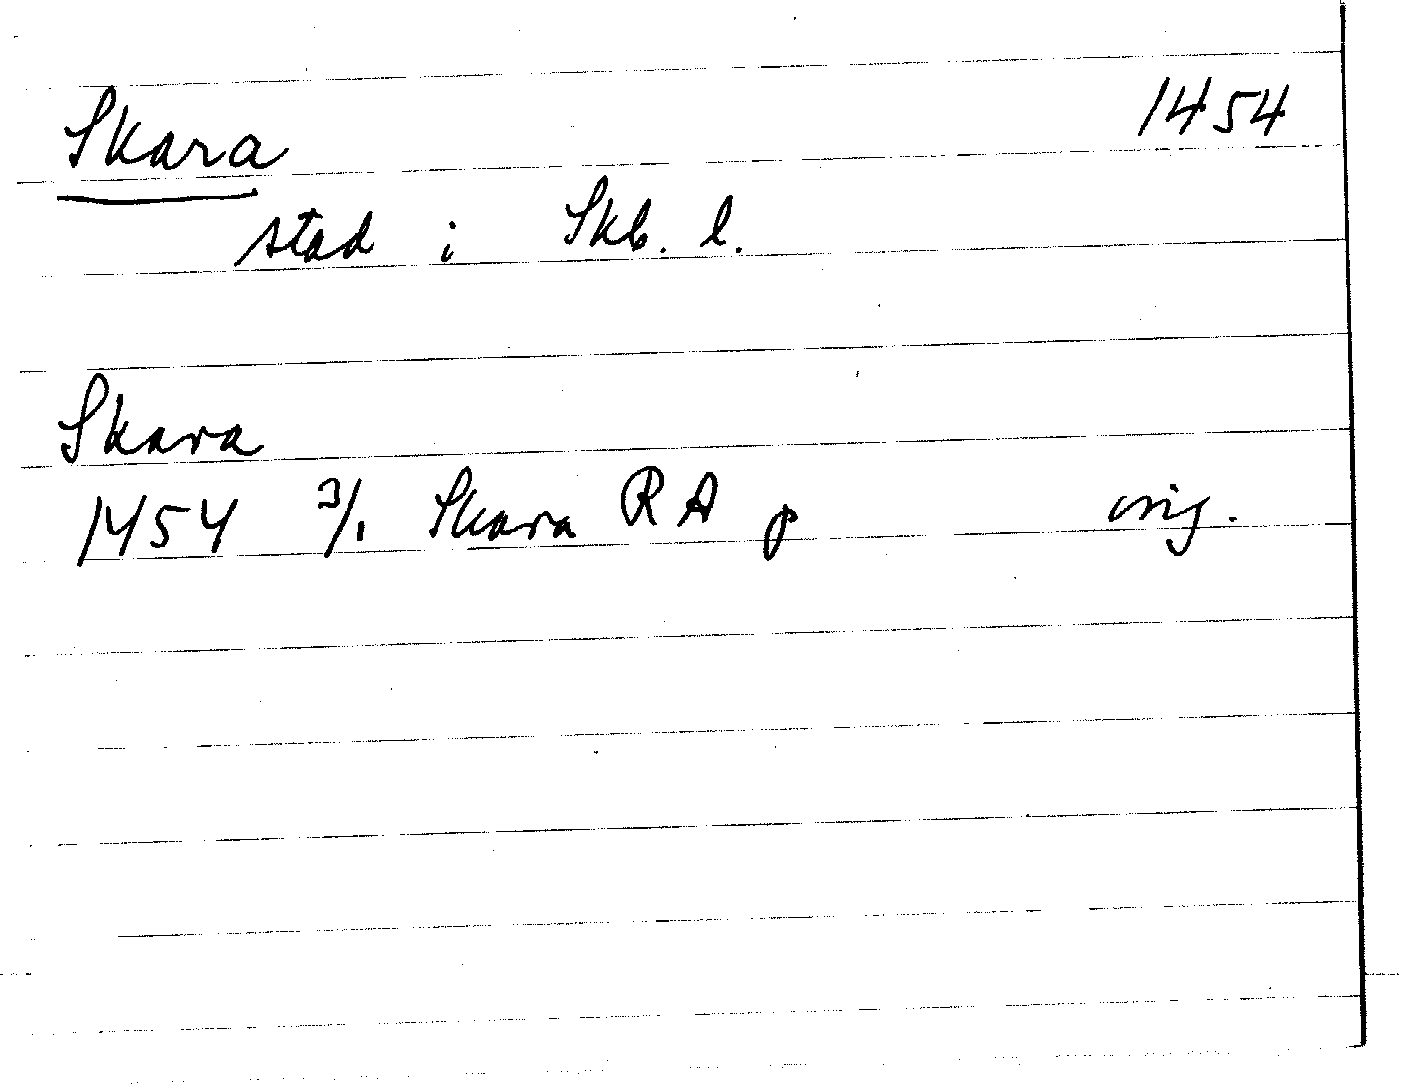 Skara 1454
stad i Skb. l.
Skara
1454 3/1 Skara RA p orig.